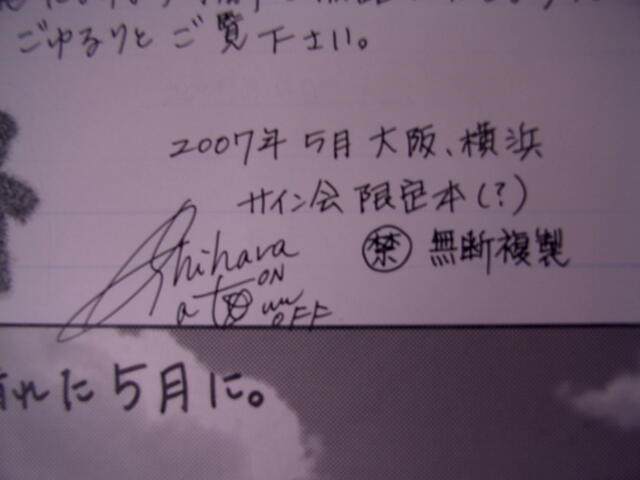 ごゆるりとご覧下さい。
2007年 5月 大阪、横浜
サイン会 限定本(?)
禁 無断複製
Shihara
ON
OFF
れに5月に。